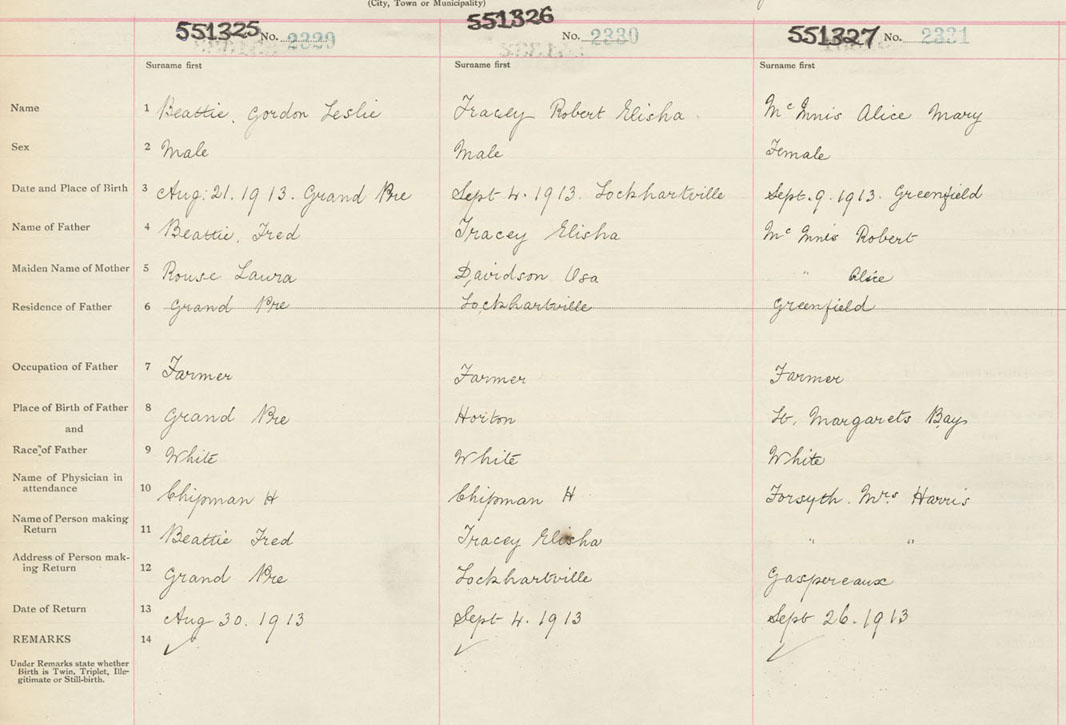 (City, Town or Municipality)
551325 No. 2329 551326 No. 2330 551327 No. 2331
Surname first Surname first Surname first
Name 1 Beattie, Gordon Leslie Tracey Robert Elisha McInnis Alice Mary
Sex 2 Male Male Female
Date and Place of Birth 3 Aug: 21. 1913. Grand Pre Sept 4. 1913. Lockhartville Sept. 9. 1913. Greenfield
Name of Father 4 Beattie, Fred Tracey Elisha McInnis Robert
Maiden Name of Mother 5 Rouse Laura Davidson Osa " Alice
Residence of Father 6 Grand Pre Lockhartville Greenfield
Occupation of Father 7 Farmer Farmer Farmer
Place of Birth of Father 8 Grand Pre Horton St. Margarets Bay
and
Race of Father 9 White White White
Name of Physician in
attendance 10 Chipman H Chipman H Forsyth. Mrs Harris
Name of Person making
Return 11 Beattie Fred Tracey Elisha " "
Address of Person mak-
ing Return 12 Grand Pre Lockhartville Gaspereaux
Date of Return 13 Aug 30. 1913 Sept 4. 1913 Sept 26. 1913
REMARKS 14
Under Remarks state whether
Birth is Twin, Triplet, Ille-
gitimate or Still-birth.